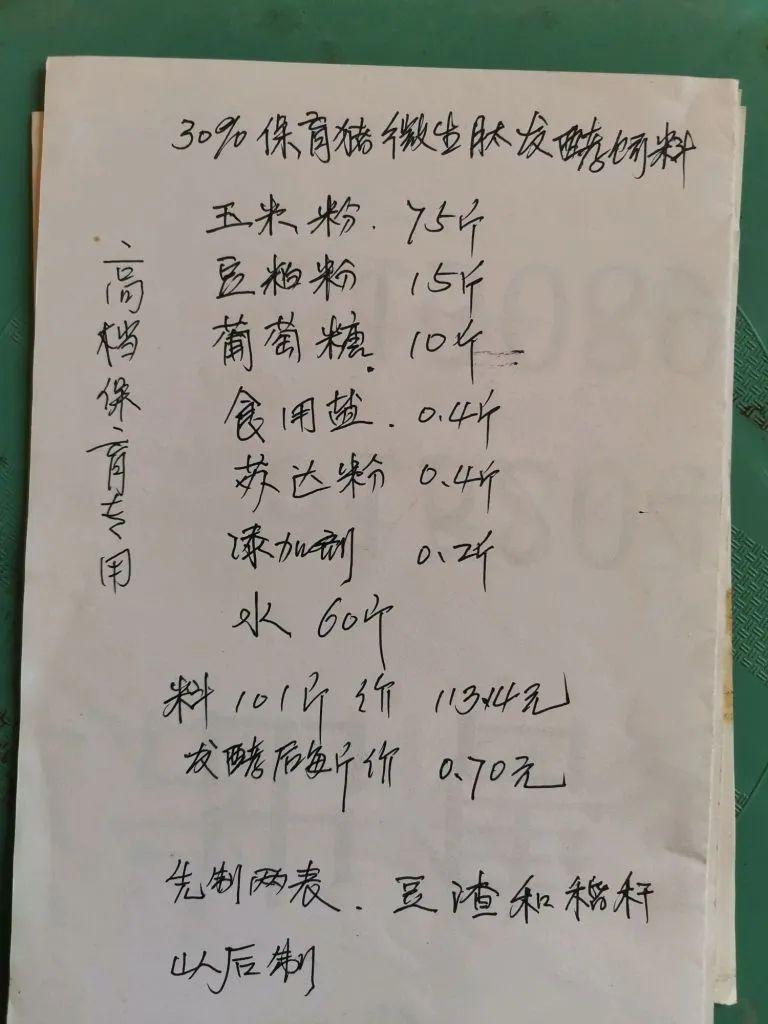 30%保育猪微生肽发酵饲料
高档保育专用
玉米粉. 75斤
豆粕粉 15斤
葡萄糖. 10斤
食用盐. 0.4斤
苏达粉 0.4斤
添加剂 0.2斤
水 60斤
料101斤价 113.4元
发酵后每斤价 0.70元
先制两表. 豆渣和稭秆
以后制